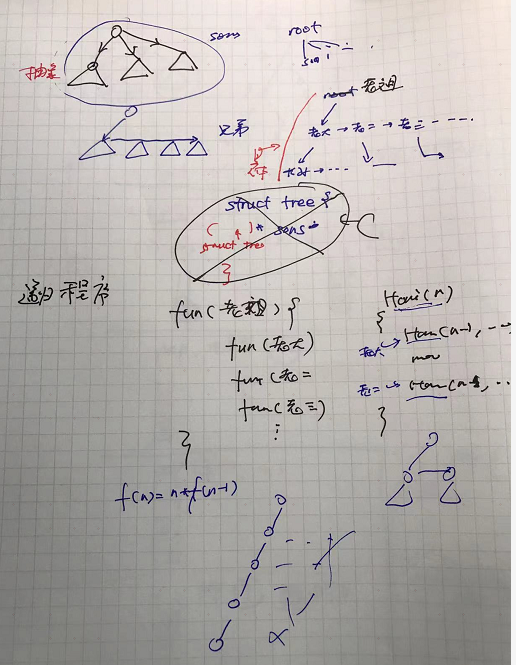 sons
root
son 1
抽象
root 老祖
兄弟
老大 → 老二 → 老三 ......
struct tree {
( )* sons
struct tree
}
C
递归程序
fun(老祖) {
fun(老大)
fun(老二
fun(老三)
⋮
}
Hanoi(n)
{
老大 → Han(n-1, ...
mov
老二 → Han(n-1, ..
}
f(n) = n * f(n-1)